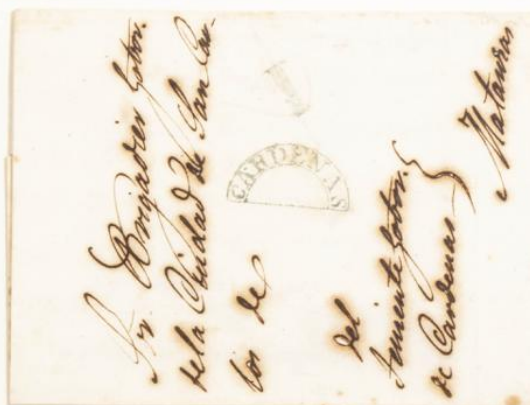 Sr. Brigadier Gobor.
de la Ciudad de San Car
los de
Matanzas
del
Teniente Gobor.
de Cardenas
CARDENAS